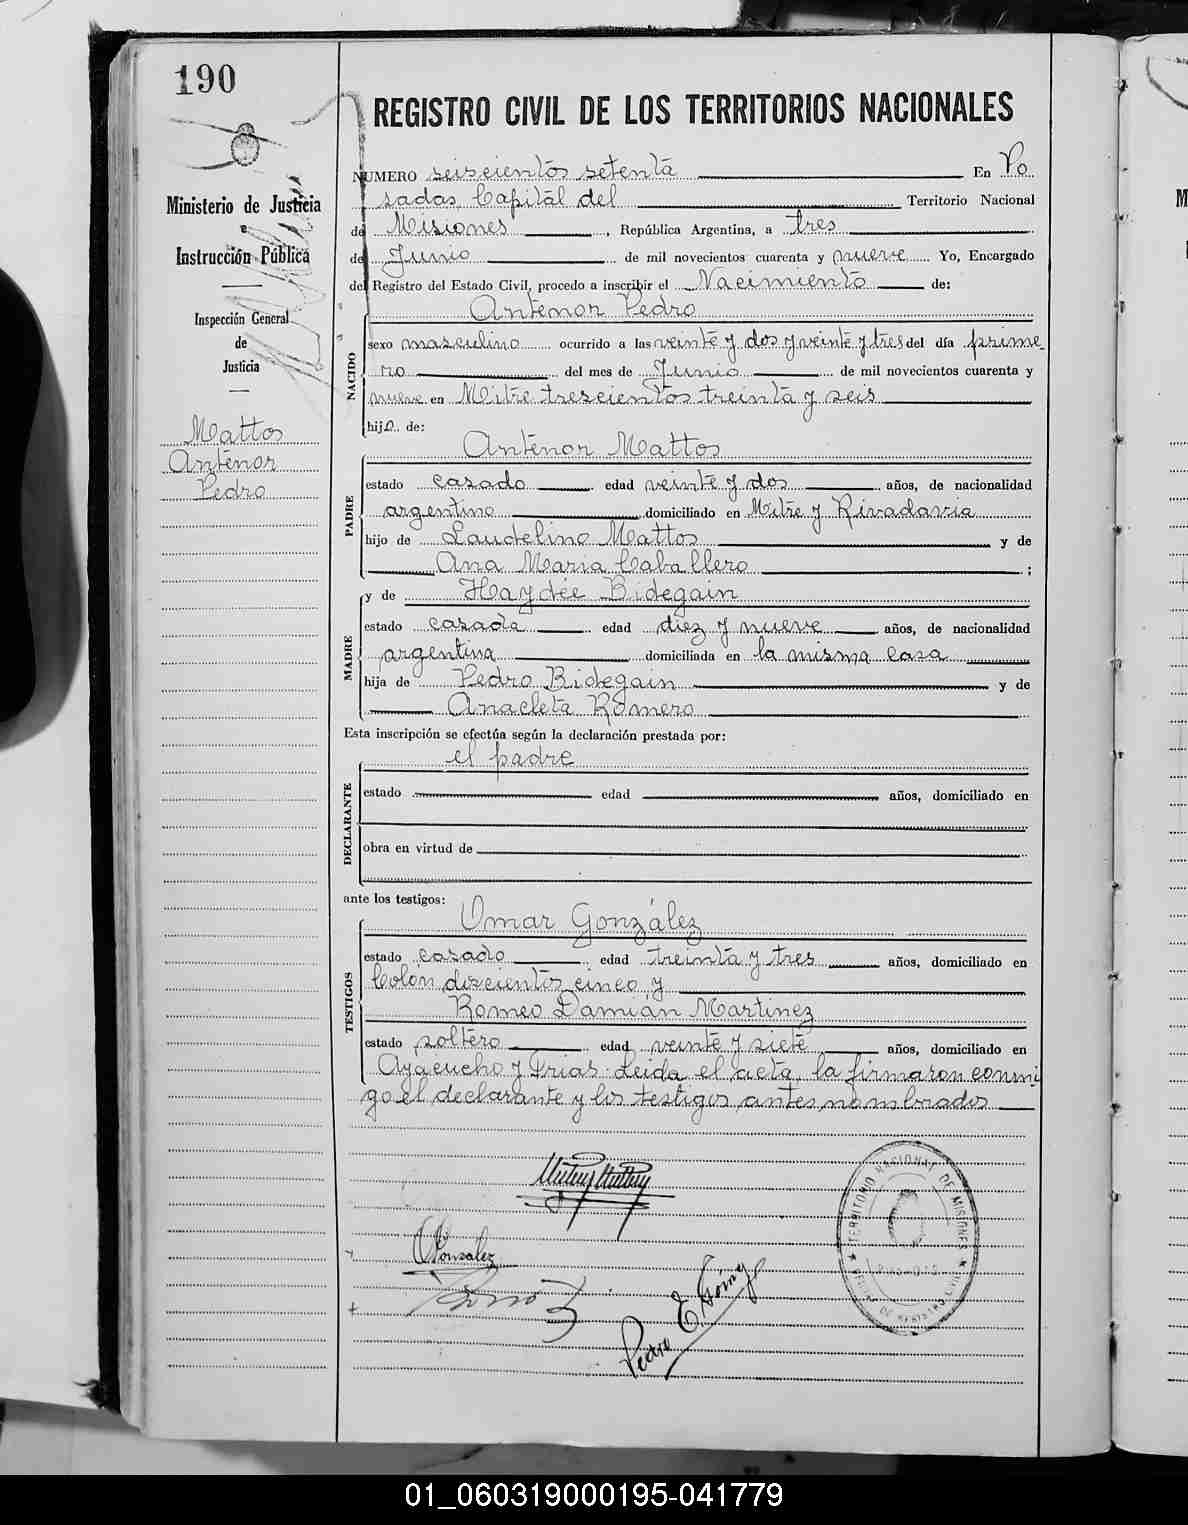 190
REGISTRO CIVIL DE LOS TERRITORIOS NACIONALES
Ministerio de Justicia
e
Instrucción Pública
Inspección General
de
Justicia
Mattos
Antenor
Pedro
NUMERO seiscientos setenta En Po
sadas, Capital del Territorio Nacional
de Misiones, República Argentina, a tres
de Junio de mil novecientos cuarenta y nueve Yo, Encargado
del Registro del Estado Civil, procedo a inscribir el Nacimiento de:
Antenor Pedro
NACIDO
sexo masculino ocurrido a las veinte y dos y veinte y tres del día prime
ro del mes de Junio de mil novecientos cuarenta y
nueve en Mitre trescientos treinta y seis
hijo de:
Antenor Mattos
PADRE
estado casado edad veinte y dos años, de nacionalidad
argentino domiciliado en Mitre y Rivadavia
hijo de Laudelino Mattos y de
Ana Maria Caballero ;
y de Haydée Bidegain
MADRE
estado casada edad diez y nueve años, de nacionalidad
argentina domiciliada en la misma casa
hija de Pedro Bidegain y de
Anacleta Romero
Esta inscripción se efectúa según la declaración prestada por:
el padre
DECLARANTE
estado edad años, domiciliado en
obra en virtud de
ante los testigos:
Omar González
TESTIGOS
estado casado edad treinta y tres años, domiciliado en
Colón doscientos cinco y
Romeo Damián Martinez
estado soltero edad veinte y siete años, domiciliado en
Ayacucho y Frias. Leida el acta, la firmaron conmi
go el declarante y los testigos antes nombrados
TERRITORIO NACIONAL DE MISIONES
OGonzalez
Pedro E. Gómez
01_060319000195-041779